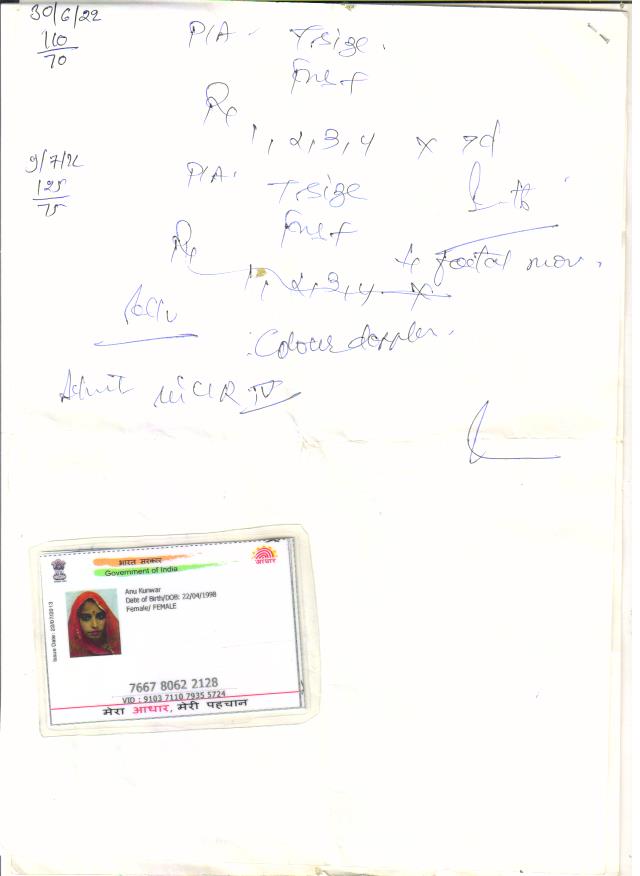 30/6/22
110
70
P/A. T.size.
FHS+
Rx
1, 2, 3, 4 x 7d
9/7/22
125
75
P/A. T.size
FHS+
Rx
1, 2, 3, 4 x
foetal mov.
Adv
Colour doppler.
Admit in CLR IV
भारत सरकार
Government of India
आधार
Issue Date: 22/07/2013
Anu Kunwar
Date of Birth/DOB: 22/04/1998
Female/ FEMALE
7667 8062 2128
VID : 9103 7110 7935 5724
मेरा आधार, मेरी पहचान